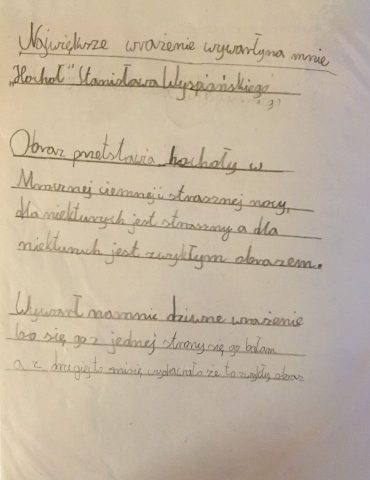 Największe wrażenie wywarłyna mnie
„Hochoł" Stanisława Wyspiańskiego
Obraz przetstawia hochoły w
Mrocznej ciemnej i strasznej nocy,
dla niekturych jest straszny a dla
niekturuch jest zwykłym obrazem.
Wywarł namnie dziwne wrażenie
bo się go z jednej strony się go bałam
a z drugiej to misię wydawało że to zwykły obraz